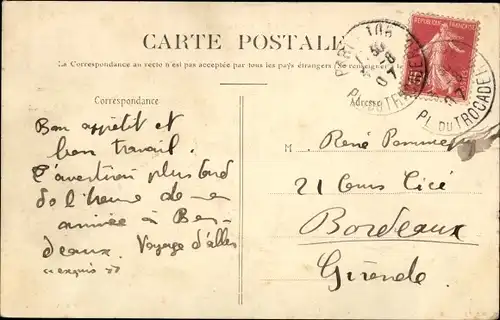 CARTE POSTALE
La Correspondance au recto n'est pas acceptée par tous les pays étrangers (Se renseigner
REPUBLIQUE FRANÇAISE
PL. DU TROCADERO
PL. DU TROCADERO
Correspondance
Adresse
Bon appétit et
bon travail.
plus tard
de l'heure de
arrivée à Bor-
deaux. Voyage d'aller
"exquis"
M. René
21 Cours
Bordeaux
Gironde